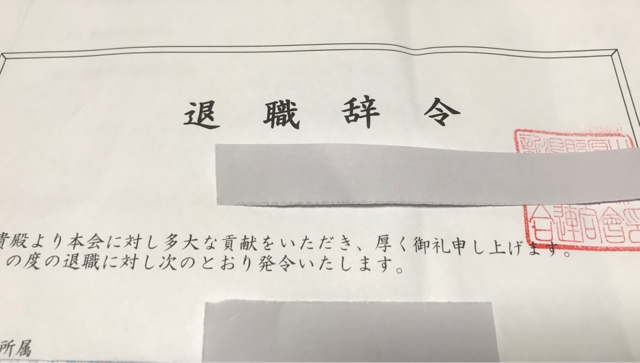 退職辞令
貴殿より本会に対し多大な貢献をいただき、厚く御礼申し上げます。
の度の退職に対し次のとおり発令いたします。
所属